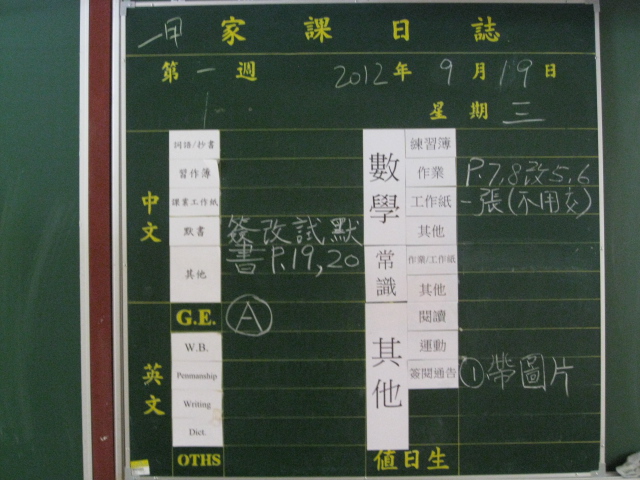 一甲 家課日誌
第一週 2012年9月19日
星期三
中文
詞語/抄書
習作簿
課業工作紙
默書 簽改試默
其他 書P.19,20
英文
G.E. A
W.B.
Penmanship
Writing
Dict.
OTHS
數學
練習簿
作業 P.7,8改5,6
工作紙 一張(不用交)
其他
常識
作業/工作紙
其他
其他
閱讀
運動
簽閱通告 ①帶圖片
值日生